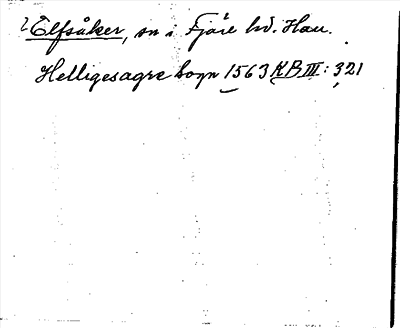 Elfsåker, sn i Fjäre hd. Hall.
Helligesagre sogn 1563 KB III: 321